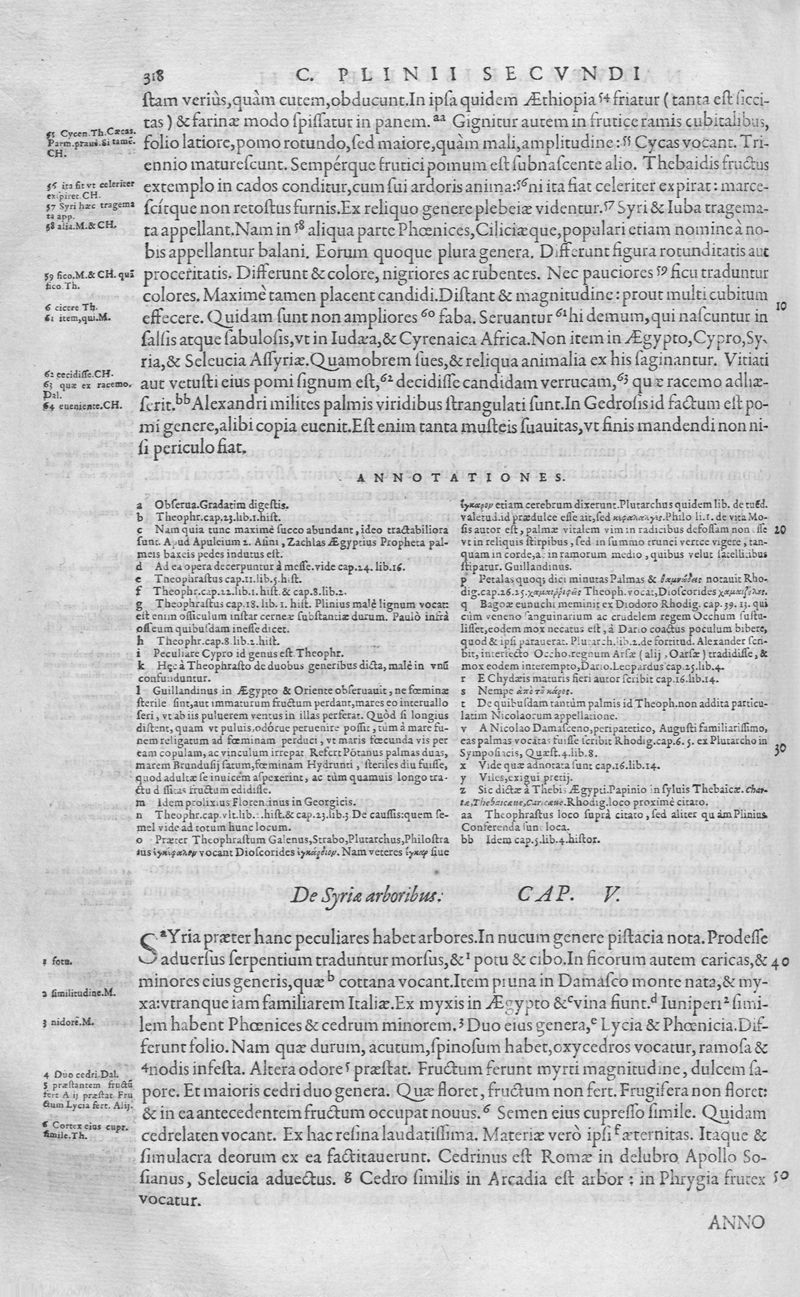 318 C. PLINII SECVNDI
ſtam veriùs,quàm cutem,obducunt.In ipſa quidem Æthiopia 54 friatur (tanta eſt ſicci-
tas) & farinæ modo ſpiſſatur in panem. aa Gignitur autem in frutice ramis cubitalibus,
folio latiore,pomo rotundo,ſed maiore,quàm mali,amplitudine: 55 Cycas vocant. Tri-
ennio matureſcunt. Sempérque frutici pomum eſt ſubnaſcente alio. Thebaidis fructus
extemplo in cados conditur,cum ſui ardoris anima: 56 ni ita fiat celeriter expirat: marce-
ſcítque non retoſtus furnis.Ex reliquo genere plebeiæ videntur. 57 Syri & Iuba tragema-
ta appellant.Nam in 58 aliqua parte Phœnices,Ciliciæque,populari etiam nomine à no-
bis appellantur balani. Eorum quoque plura genera. Differunt figura rotunditatis aut
proceritatis. Differunt & colore, nigriores ac rubentes. Nec pauciores 59 ficu traduntur
colores. Maximè tamen placent candidi.Diſtant & magnitudine: prout multi cubitum
effecere. Quidam ſunt non ampliores 60 faba. Seruantur 61 hi demum,qui naſcuntur in
ſalſis atque ſabuloſis,vt in Iudæa,& Cyrenaica Africa.Non item in Ægypto,Cypro,Sy-
ria,& Seleucia Aſſyriæ.Quamobrem ſues,& reliqua animalia ex his ſaginantur. Vitiati
aut vetuſti eius pomi ſignum eſt, 62 decidiſſe candidam verrucam, 63 quæ racemo adhæ-
ſerit. bb Alexandri milites palmis viridibus ſtrangulati ſunt.In Gedroſis id factum eſt po-
mi genere,alibi copia euenit.Eſt enim tanta muſteis ſuauitas,vt finis mandendi non ni-
ſi periculo fiat.
55 Cycen.Th.Cæcas.
Parm.praui.Bi tamē.
CH.
56 ita fit vt celeriter
expiret.CH.
57 Syri hæc tragema
ta app.
58 alia.M.& CH.
59 fico.M.& CH. quā
fico.Th.
6 cicere Th.
61 item,qui.M.
62 cecidiſſe.CH.
63 quæ ex racemo.
Dal.
64 eueniente.CH.
10
ANNOTATIONES.
a Obſerua.Gradatim digeſtis.
b Theophr.cap.23.lib.1.hiſt.
c Nam quia tunc maximè ſucco abundant, ideo tractabiliora
ſunt. Apud Apuleium 2. Aſini, Zachlas Ægyptius Propheta pal-
meis baxeis pedes indutus eſt.
d Ad ea opera decerpuntur à meſſe.vide cap.24. lib.16.
e Theophraſtus cap.11.lib.5.hiſt.
f Theophr.cap.12.lib.1.hiſt.& cap.8.lib.2.
g Theophraſtus cap.18. lib. 1. hiſt. Plinius malè lignum vocat:
eſt enim officulum inſtar cerneæ ſubſtantiæ durum. Paulò infrà
oſſeum quibuſdam ineſſe dicet.
h Theophr.cap.8 lib.2.hiſt.
i Peculiare Cypro id genus eſt Theophr.
k Hęc à Theophraſto de duobus generibus dicta, malè in vnū
confunduntur.
l Guillandinus in Ægypto & Oriente obſeruauit, ne fœminæ
ſterile ſint,aut immaturum fructum perdant,mares eo interuallo
ſeri, vt ab iis puluerem ventus in illas perferat. Quòd ſi longius
diſtent,quam vt puluis,odórue peruenire poſſit, tùm à mare fu-
nem religatum ad fœminam perduci, vt maris fœcunda vis per
eam copulam,ac vinculum irrepat Refert Pótanus palmas duas,
marem Brunduſij ſatum,fœminam Hydrunti, ſteriles diu fuiſſe,
quod adultæ ſe inuicem aſpexerint, ac tùm quamuis longo tra-
ctu diſſitas fructum edidiſſe.
m Idem prolixius Florentinus in Georgicis.
n Theophr.cap.vlt.lib.1.hiſt.& cap.23.lib.3 De cauſſis:quem ſe-
mel vide ad totum hunc locum.
o Præter Theophraſtum Galenus,Strabo,Plutarchus,Philoſtra
tus ἐγκέφαλον vocant Dioſcorides ἐγκάρδιον. Nam veteres ἔγκαρ ſiue
ἴγκαρον etiam cerebrum dixerunt.Plutarchus quidem lib. de tuēd.
valetud.id prædulce eſſe ait,ſed κεφαλαλγές.Philo li.1. de vita Mo-
ſis autor eſt, palmæ vitalem vim in radicibus defoſſam non eſſe
vt in reliquis ſtirpibus, ſed in ſummo trunci vertice vigere, tan-
quam in corde,ac in ramorum medio, quibus velut ſatellitibus
ſtipatur. Guillandinus.
p Petalas quoq; dici minutas Palmas & θαμνάδας notauit Rho-
dig.cap.26.25.χαμαιῤῥιφεῖς Theoph.vocat,Dioſcorides χαμαίζηλας.
q Bagoæ eunuchi meminit ex Diodoro Rhodig. cap.39.13. qui
cùm veneno ſanguinarium ac crudelem regem Occhum ſuſtu-
liſſet,eodem mox necatus eſt, à Dario coactus poculum bibere,
quod & ipſi parauerat. Plutarch.lib.2.de fortitud. Alexander ſcri-
bit, interfecto Occho.regnum Arſæ (alij, Oarſæ) tradidiſſe, &
mox eodem interempto,Dario.Leopardus cap.25.lib.4.
r E Chydæis maturis fieri autor ſcribit cap.16.lib.14.
s Nempe ἀπὸ τοῦ κάρος.
t De quibuſdam tantùm palmis id Theoph.non addita particu-
latim Nicolaorum appellatione.
v A Nicolao Damaſceno,peripatetico, Auguſti familiariſſimo,
eas palmas vocatas fuiſſe ſcribit Rhodig.cap.6.5. ex Plutarcho in
Sympoſiacis, Quæſt.4.lib.8.
x Vide quæ adnotata ſunt cap.16.lib.14.
y Viles,exigui pretij.
z Sic dictæ à Thebis Ægypti.Papinio in ſyluis Thebaicæ. Char-
tæ,Thebaicæue,Caricæue.Rhodig.loco proximè citato.
aa Theophraſtus loco ſuprà citato, ſed aliter quàm Plinius.
Conferenda ſunt loca.
bb Idem cap.5.lib.4.hiſtor.
20
30
De Syriæ arboribus: CAP. V.
SaYria præter hanc peculiares habet arbores.In nucum genere piſtacia nota.Prodeſſe
aduerſus ſerpentium traduntur morſus,& 1 potu & cibo.In ficorum autem caricas,&
minores eius generis,quæ b cottana vocant.Item pruna in Damaſco monte nata,& my-
xa:vtranque iam familiarem Italiæ.Ex myxis in Ægypto & c vina fiunt. d Iuniperi 2 ſimi-
lem habent Phœnices & cedrum minorem. 3 Duo eius genera, e Lycia & Phœnicia.Dif-
ferunt folio.Nam quæ durum, acutum,ſpinoſum habet,oxycedros vocatur, ramoſa &
4 nodis infeſta. Altera odore 5 præſtat. Fructum ferunt myrti magnitudine, dulcem ſa-
pore. Et maioris cedri duo genera. Quæ floret, fructum non fert. Frugifera non floret:
& in ea antecedentem fructum occupat nouus. 6 Semen eius cupreſſo ſimile. Quidam
cedrelaten vocant. Ex hac reſina laudatiſſima. Materiæ verò ipſi f æternitas. Itaque &
ſimulacra deorum ex ea factitauerunt. Cedrinus eſt Romæ in delubro Apollo So-
ſianus, Seleucia aduectus. g Cedro ſimilis in Arcadia eſt arbor: in Phrygia frutex
vocatur.
1 ſotu.
2 ſimilitudine.M.
3 nidore.M.
4 Duo cedri.Dal.
5 præſtantem fructū
fert Aij præſtat Fru
ctum Lycia fert. Alij.
6 Cortex eius cupr.
ſimile.Th.
40
50
ANNO